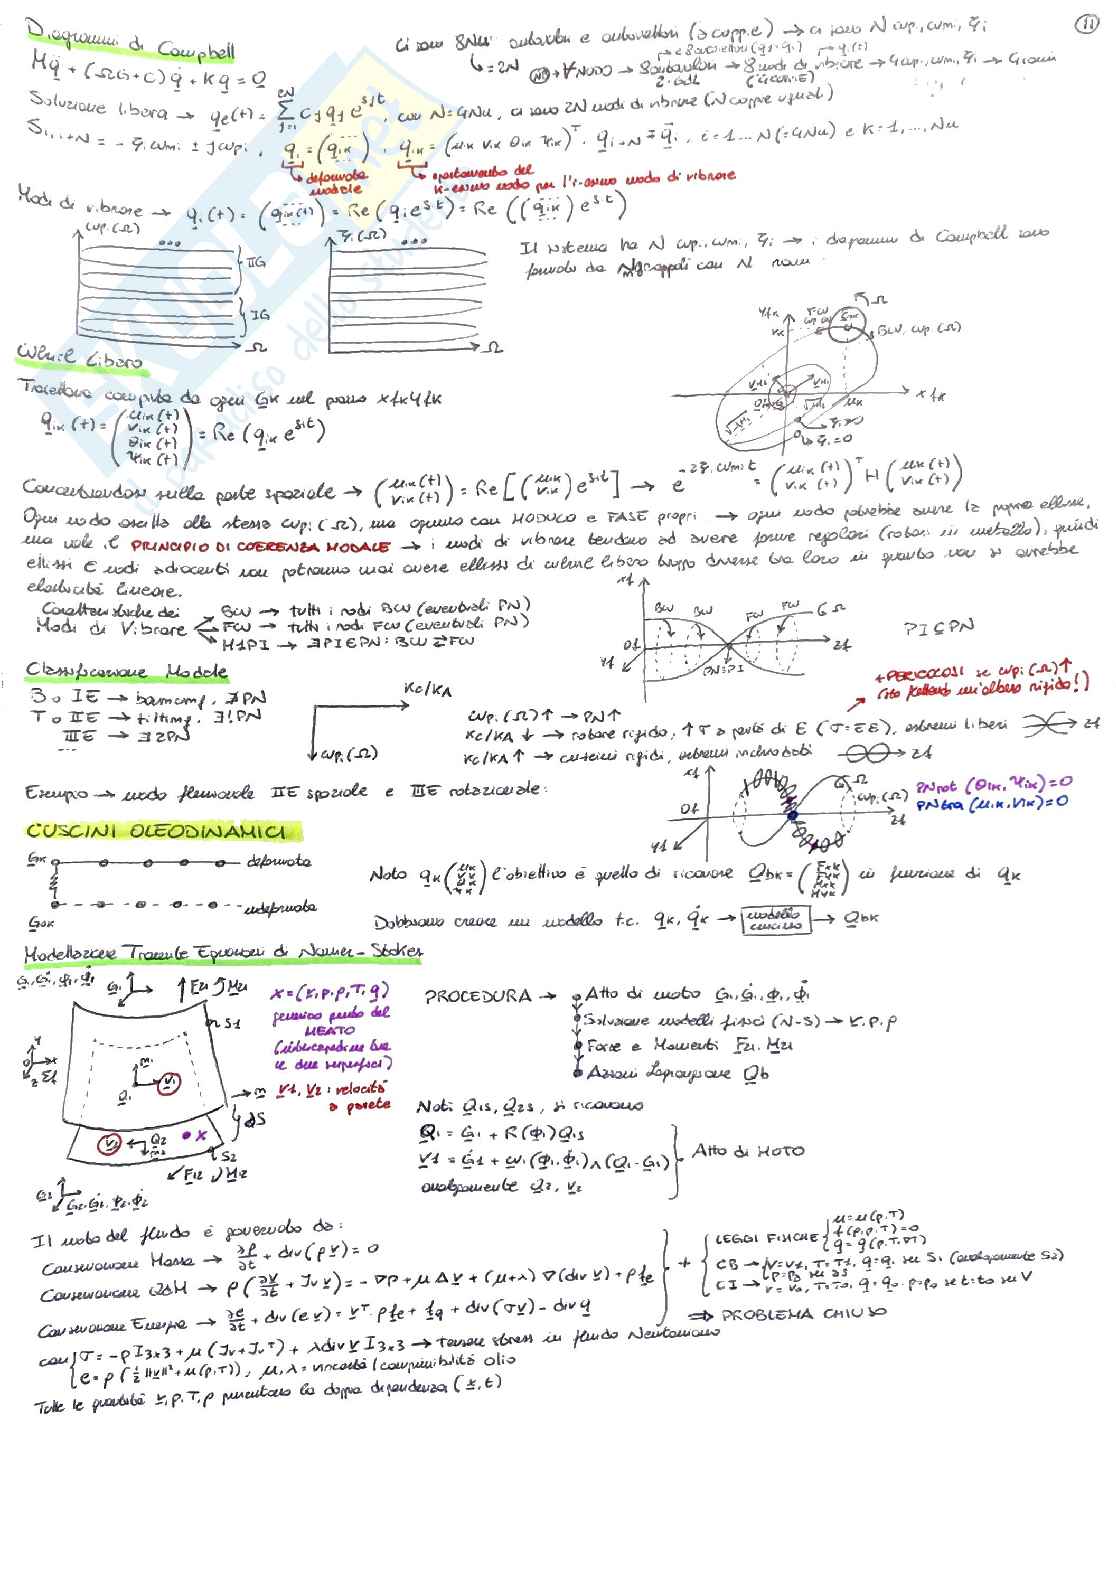 11
Diagrammi di Campbell
Ci sono 8Nu autovalori e autovettori (a coppie) → ci sono N ωp, ωmi, ξi
Mq̈ + (ΩG+C)q̇ + Kq = 0
↳ = 2N
∀NODO → 8 autovalori → 8 modi di vibrare → 4 ωpi, ωmi, ξi → 4 rami
Soluzione libera → qe(t) = Σ cj qj e^sjt, con N=4Nu, ci sono 2N modi di vibrare (N coppie uguali)
Si, i+N = -ξi ωmi ± jωpi, qi = (qik), qik = (uik vik θik ψik)^T, qi+N = q̄i, i=1...N(=4Nu) e k=1,...,Nu
↳ deformata modale
↳ spostamento del k-esimo nodo per l'i-esimo modo di vibrare
Modi di vibrare → qi(t) = (qik(t)) = Re(qi e^sit) = Re((qik) e^sit)
ωpi(Ω)
IIG
IG
Ω
ξi(Ω)
Ω
Il sistema ha N ωpi, ωmi, ξi → i diagrammi di Campbell sono
formati da Ng gruppi con N rami
Whirl Libero
Traiettoria compiuta da ogni Gk nel piano xfk yfk
qik(t) = (uik(t) vik(t) θik(t) ψik(t)) = Re(qik e^sit)
yfk
Ω
BW, ωpi(Ω)
xfk
ξi>0
ξi=0
Concentrandosi sulla parte spaziale → (uik(t) vik(t)) = Re[(uik vik) e^sit] → e^-2ξiωmit = (uik(t) vik(t))^T H (uik(t) vik(t))
Ogni nodo oscilla alla stessa ωpi(Ω), ma ognuno con MODULO e FASE propri → ogni nodo potrebbe avere la propria ellisse,
ma vale il PRINCIPIO DI COERENZA MODALE → i modi di vibrare tendono ad avere forme regolari (rotori in metallo), quindi
ellissi e nodi adiacenti non potranno mai avere ellissi di whirl libero troppo diverse tra loro in quanto non si avrebbe
elasticità lineare.
Caratteristiche dei Modi di Vibrare
BW → tutti i nodi BW (eventuali PN)
FW → tutti i nodi FW (eventuali PN)
M1PI → ∃PI∈PN: BW ⇄ FW
xf
BW BW FW FW
Ω
Of
zf
yf
PN≡PI
PI⊆PN
Classificazione Modale
B o IE → bouncing, ∄PN
T o IIE → tilting, ∃!PN
IIIE → ∃2PN
Kc/KA
ωpi(Ω)
+PERICOLOSI se ωpi(Ω)↑
(sto flettendo un'albero rigido!)
ωpi(Ω)↑ → PN↑
Kc/KA ↓ → rotore rigido, ↑σ a parità di E (σ=εE), estremi liberi
zf
Kc/KA ↑ → cuscini rigidi, estremi inchiodati
zf
Esempio → modo flessionale IIE spaziale e IIIE rotazionale:
xf
Of
yf
Ω
ωpi(Ω)
zf
PNrot (θik, ψik)=0
PNtra (uik, vik)=0
CUSCINI OLEODINAMICI
Gk
deformata
indeformata
G0k
Noto qk l'obiettivo è quello di ricavare Qbk = (Fxk Fyk Mxk Myk) in funzione di qk
Dobbiamo creare un modello t.c. qk, q̇k → modello cuscino → Qbk
Modellazione Tramite Equazioni di Navier-Stokes
G1, Ġ1, φ1, φ̇1
G1
F21 M21
S1
x = (v, p, ρ, T, q)
generico punto del
MEATO
(intercapedine tra
le due superfici)
V1, V2: velocità
a parete
y
x
z Σf
n1
V1
Q1
m
∂S
V2
Q2
n2
x
S2
F12 M12
G2
G2, Ġ2, φ2, φ̇2
PROCEDURA → Atto di moto G1, Ġ1, φ1, φ̇1
Soluzione modelli fisici (N-S) → v, p, ρ
Forze e Momenti F21, M21
Azioni Lagrangiane Qb
Noti Q1S, Q2S, si ricavano
Q1 = G1 + R(φ1)Q1S
V1 = Ġ1 + ω1(φ1, φ̇1) ∧ (Q1-G1)
analogamente Q2, V2
Atto di MOTO
Il moto del fluido è governato da:
Conservazione Massa → ∂ρ/∂t + div(ρv) = 0
Conservazione QdM → ρ(∂v/∂t + Jv v) = -∇p + μΔv + (μ+λ)∇(div v) + ρfe
Conservazione Energia → ∂e/∂t + div(ev) = v^T ρfe + fq + div(σv) - div q
con σ = -p I3x3 + μ(Jv+Jv^T) + λ div v I3x3 → tensore stress in fluido Newtoniano
e = ρ(½‖v‖² + u(p,T)), μ, λ = viscosità/comprimibilità olio
+
LEGGI FISICHE
μ = μ(p,T)
f(p,ρ,T)=0
q = q(p,T,∇T)
CB → v=V1, T=T1, q=q1 su S1 (analogamente S2)
p=p0 su ∂S
CI → v=v0, T=T0, q=q0, p=p0 se t=t0 su V
⇒ PROBLEMA CHIUSO
Tutte le quantità v, p, T, ρ presentano la doppia dipendenza (x, t)